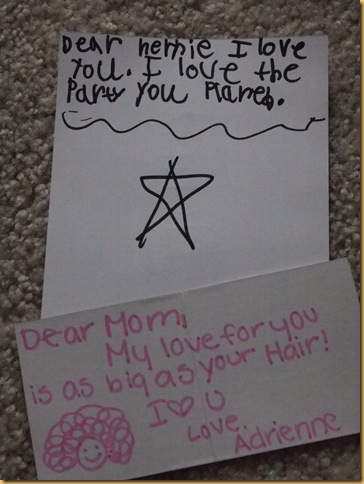 Dear nennie I love
You. I love the
Party You Planed.
Dear Mom,
My love for you
is as big as your Hair!
I ♡ U
Love,
Adrienne